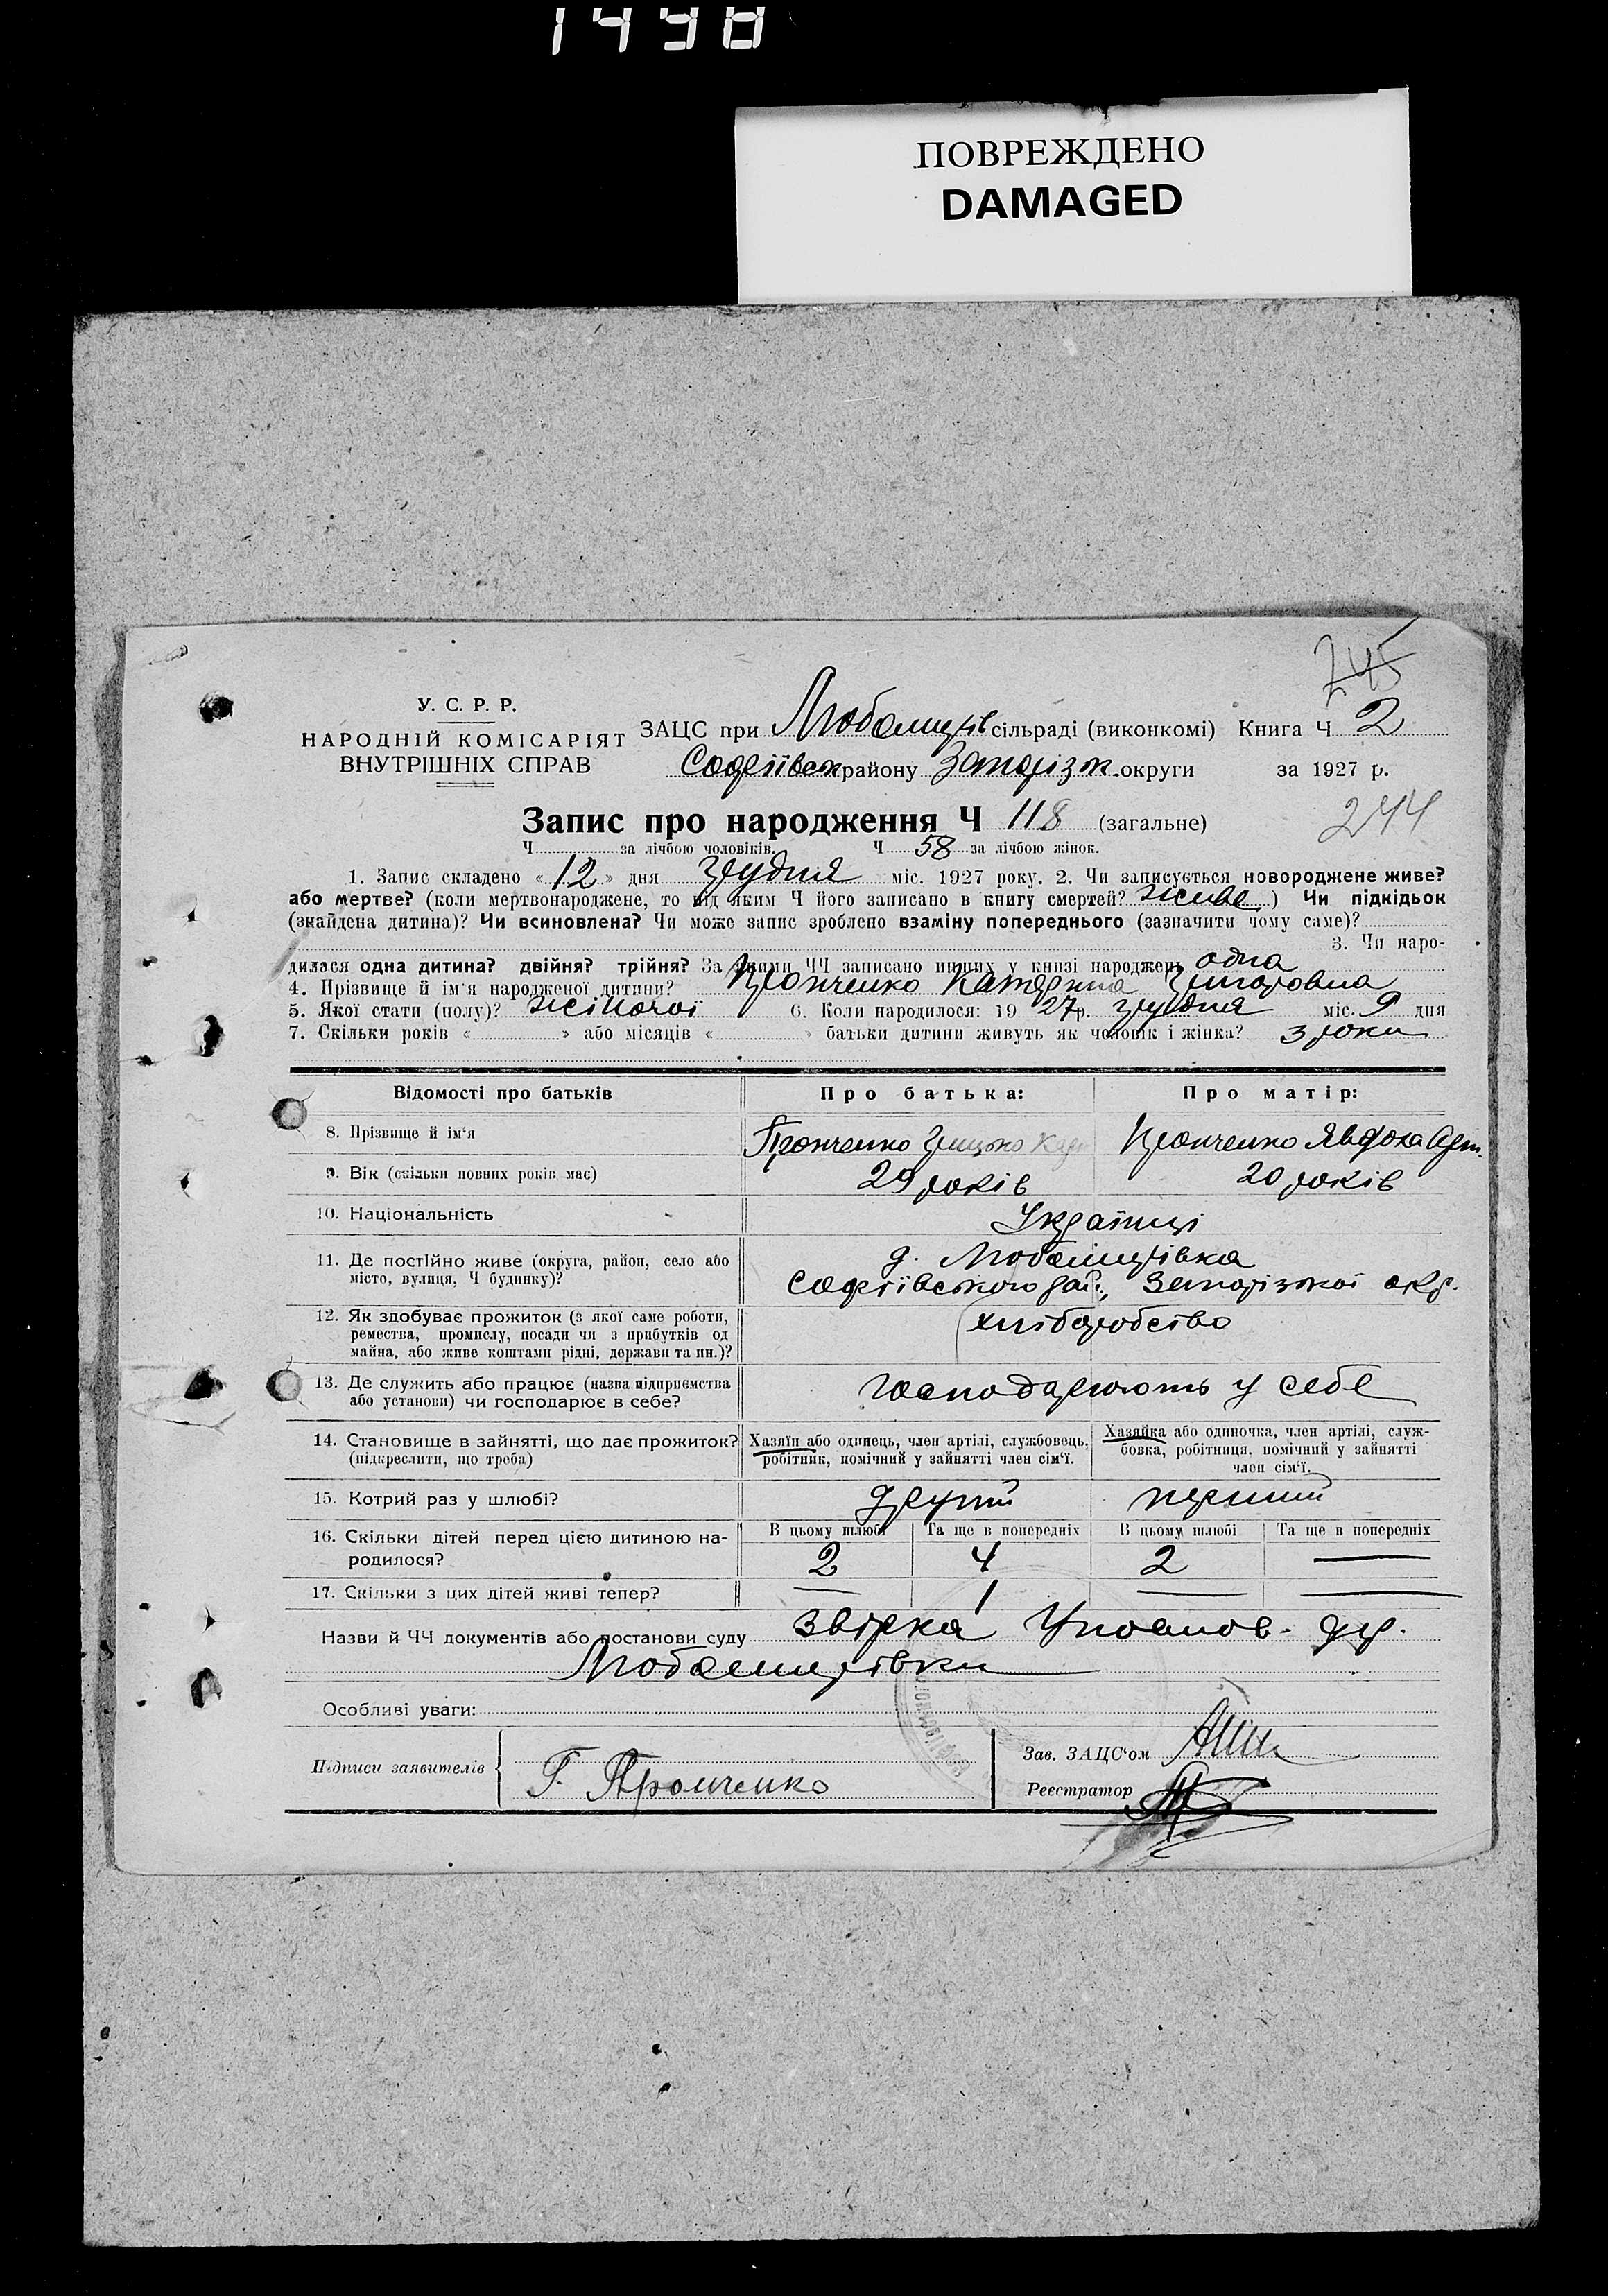 1498
ПОВРЕЖДЕНО
DAMAGED
245
У. С. Р. Р.
НАРОДНІЙ КОМІСАРІЯТ
ВНУТРІШНІХ СПРАВ
ЗАЦС при Любомирів сільраді (виконкомі) Книга Ч 2
Софіївськ району Запорізьк округи за 1927 р.
Запис про народження Ч 118 (загальне)
244
Ч за лічбою чоловіків. Ч 58 за лічбою жінок.
1. Запис складено « 12 » дня грудня міс. 1927 року. 2. Чи записується новороджене живе?
або мертве? (коли мертвонароджене, то під яким Ч його записано в книгу смертей? живе ) Чи підкідьок
(знайдена дитина)? Чи всиновлена? Чи може запис зроблено взаміну попереднього (зазначити чому саме)?
3. Чи наро-
дилася одна дитина? двійня? трійня? За якими ЧЧ записано инших у книзі народжень одна
4. Прізвище й ім'я народженої дитини? Пронченко Катерина Григоровна
5. Якої стати (полу)? жіночої 6. Коли народилося: 19 27 р. грудня міс. 9 дня
7. Скільки років « » або місяців « » батьки дитини живуть як чоловік і жінка? 3 роки
Відомості про батьків Про батька: Про матір:
8. Прізвище й ім'я Пронченко Грицько Пронченко Явдоха
9. Вік (скільки повних років має) 29 років 20 років
10. Національність Українці
11. Де постійно живе (округа, район, село або
місто, вулиця, Ч будинку)?
д. Любомирівка
Софіївського рай., Запорізької окр.
12. Як здобуває прожиток (з якої саме роботи,
ремества, промислу, посади чи з прибутків од
майна, або живе коштами рідні, держави та ин.)?
хліборобство
13. Де служить або працює (назва підприємства
або установи) чи господарює в себе?
господарюють у себе
14. Становище в зайнятті, що дає прожиток?
(підкреслити, що треба)
Хазяїн або одинець, член артілі, службовець,
робітник, помічний у зайнятті член сім'ї.
Хазяйка або одиночка, член артілі, служ-
бовка, робітниця, помічний у зайнятті
член сім'ї.
15. Котрий раз у шлюбі? другий перший
16. Скільки дітей перед цією дитиною на-
родилося?
В цьому шлюбі Та ще в попередніх В цьому шлюбі Та ще в попередніх
2 4 2 —
17. Скільки з цих дітей живі тепер? — 1 — —
Назви й ЧЧ документів або постанови суду звірка
Любомирівки
Особливі уваги:
Підписи заявителів Г. Пронченко
Зав. ЗАЦС'ом
Реєстратор